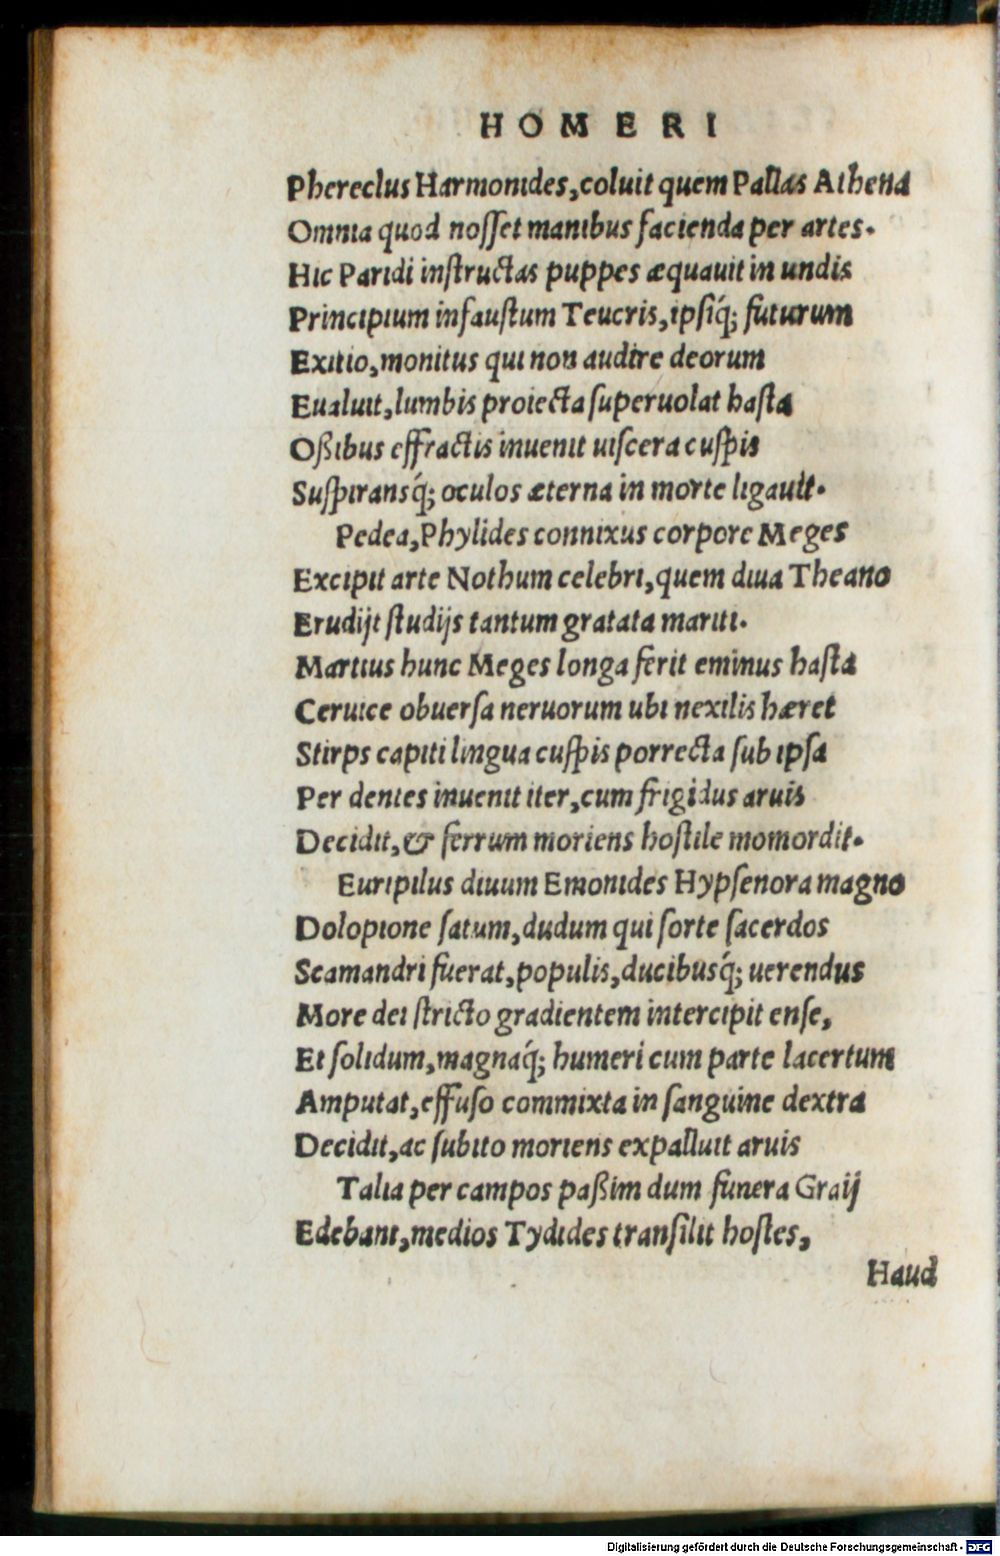 HOMERI
Phereclus Harmonides, coluit quem Pallas Athena
Omnia quod nosset manibus facienda per artes.
Hic Paridi instructas puppes æquauit in undis
Principium infaustum Teucris, ipsiq́; futurum
Exitio, monitus qui non audire deorum
Eualuit, lumbis proiecta superuolat hasta
Oßibus effractis inuenit uiscera cuspis
Suspiransq́; oculos æterna in morte ligauit.
Pedea, Phylides connixus corpore Meges
Excipit arte Nothum celebri, quem diua Theano
Erudijt studijs tantum gratata mariti.
Martius hunc Meges longa ferit eminus hasta
Ceruice obuersa neruorum ubi nexilis hæret
Stirps capiti lingua cuspis porrecta sub ipsa
Per dentes inuenit iter, cum frigidus aruis
Decidit, & ferrum moriens hostile momordit.
Euripilus diuum Emonides Hypsenora magno
Dolopione satum, dudum qui sorte sacerdos
Scamandri fuerat, populis, ducibusq́; uerendus
More dei stricto gradientem intercipit ense,
Et solidum, magnaq́; humeri cum parte lacertum
Amputat, effuso commixta in sanguine dextra
Decidit, ac subito moriens expalluit aruis
Talia per campos paßim dum funera Graij
Edebant, medios Tydides transilit hostes,
Haud
Digitalisierung gefördert durch die Deutsche Forschungsgemeinschaft - DFG